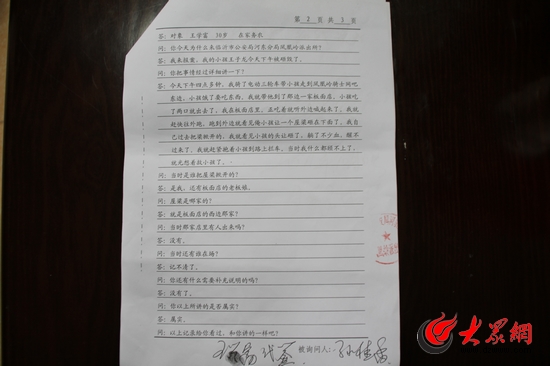 第 2 页 共 3 页
答: 对象 王学富 30岁 在家务农
问: 你今天为什么来临沂市公安局河东分局凤凰岭派出所?
答: 我来报案, 我的小孩王子龙今天下午被砸毁了。
问: 你把事情经过详细讲一下?
答: 今天下午四点多钟, 我骑了电动三轮车带小孩走到凤凰岭骑士网吧
东边, 小孩饿了要吃东西, 我就带他到了那边一家板面店, 小孩吃
了两口就出去了, 我在板面店里, 正吃着就听外边喊起来了, 我就
赶快往外跑, 跑到外边就看见俺小孩让一个屋梁砸在下面了, 我自
己过去把梁掀开的, 我就看见小孩的头让砸了, 躺了不少血, 醒不
过来了, 我就赶紧抱着小孩到路上拦车, 当时我什么都顾不上了,
就光想着救小孩了。
问: 当时是谁把屋梁掀开的?
答: 是我, 还有板面店的老板娘。
问: 屋梁是哪家的?
答: 就是板面店的西边那家?
问: 当时那家店里有人出来吗?
答: 没有。
问: 当时还有谁在场?
答: 记不清了。
问: 你还有什么需要补充说明的吗?
答: 没有了。
问: 你以上所讲的是否属实?
答: 属实。
问: 以上记录给你看过, 和你讲的一样吧?
代签 被询问人:
大众網